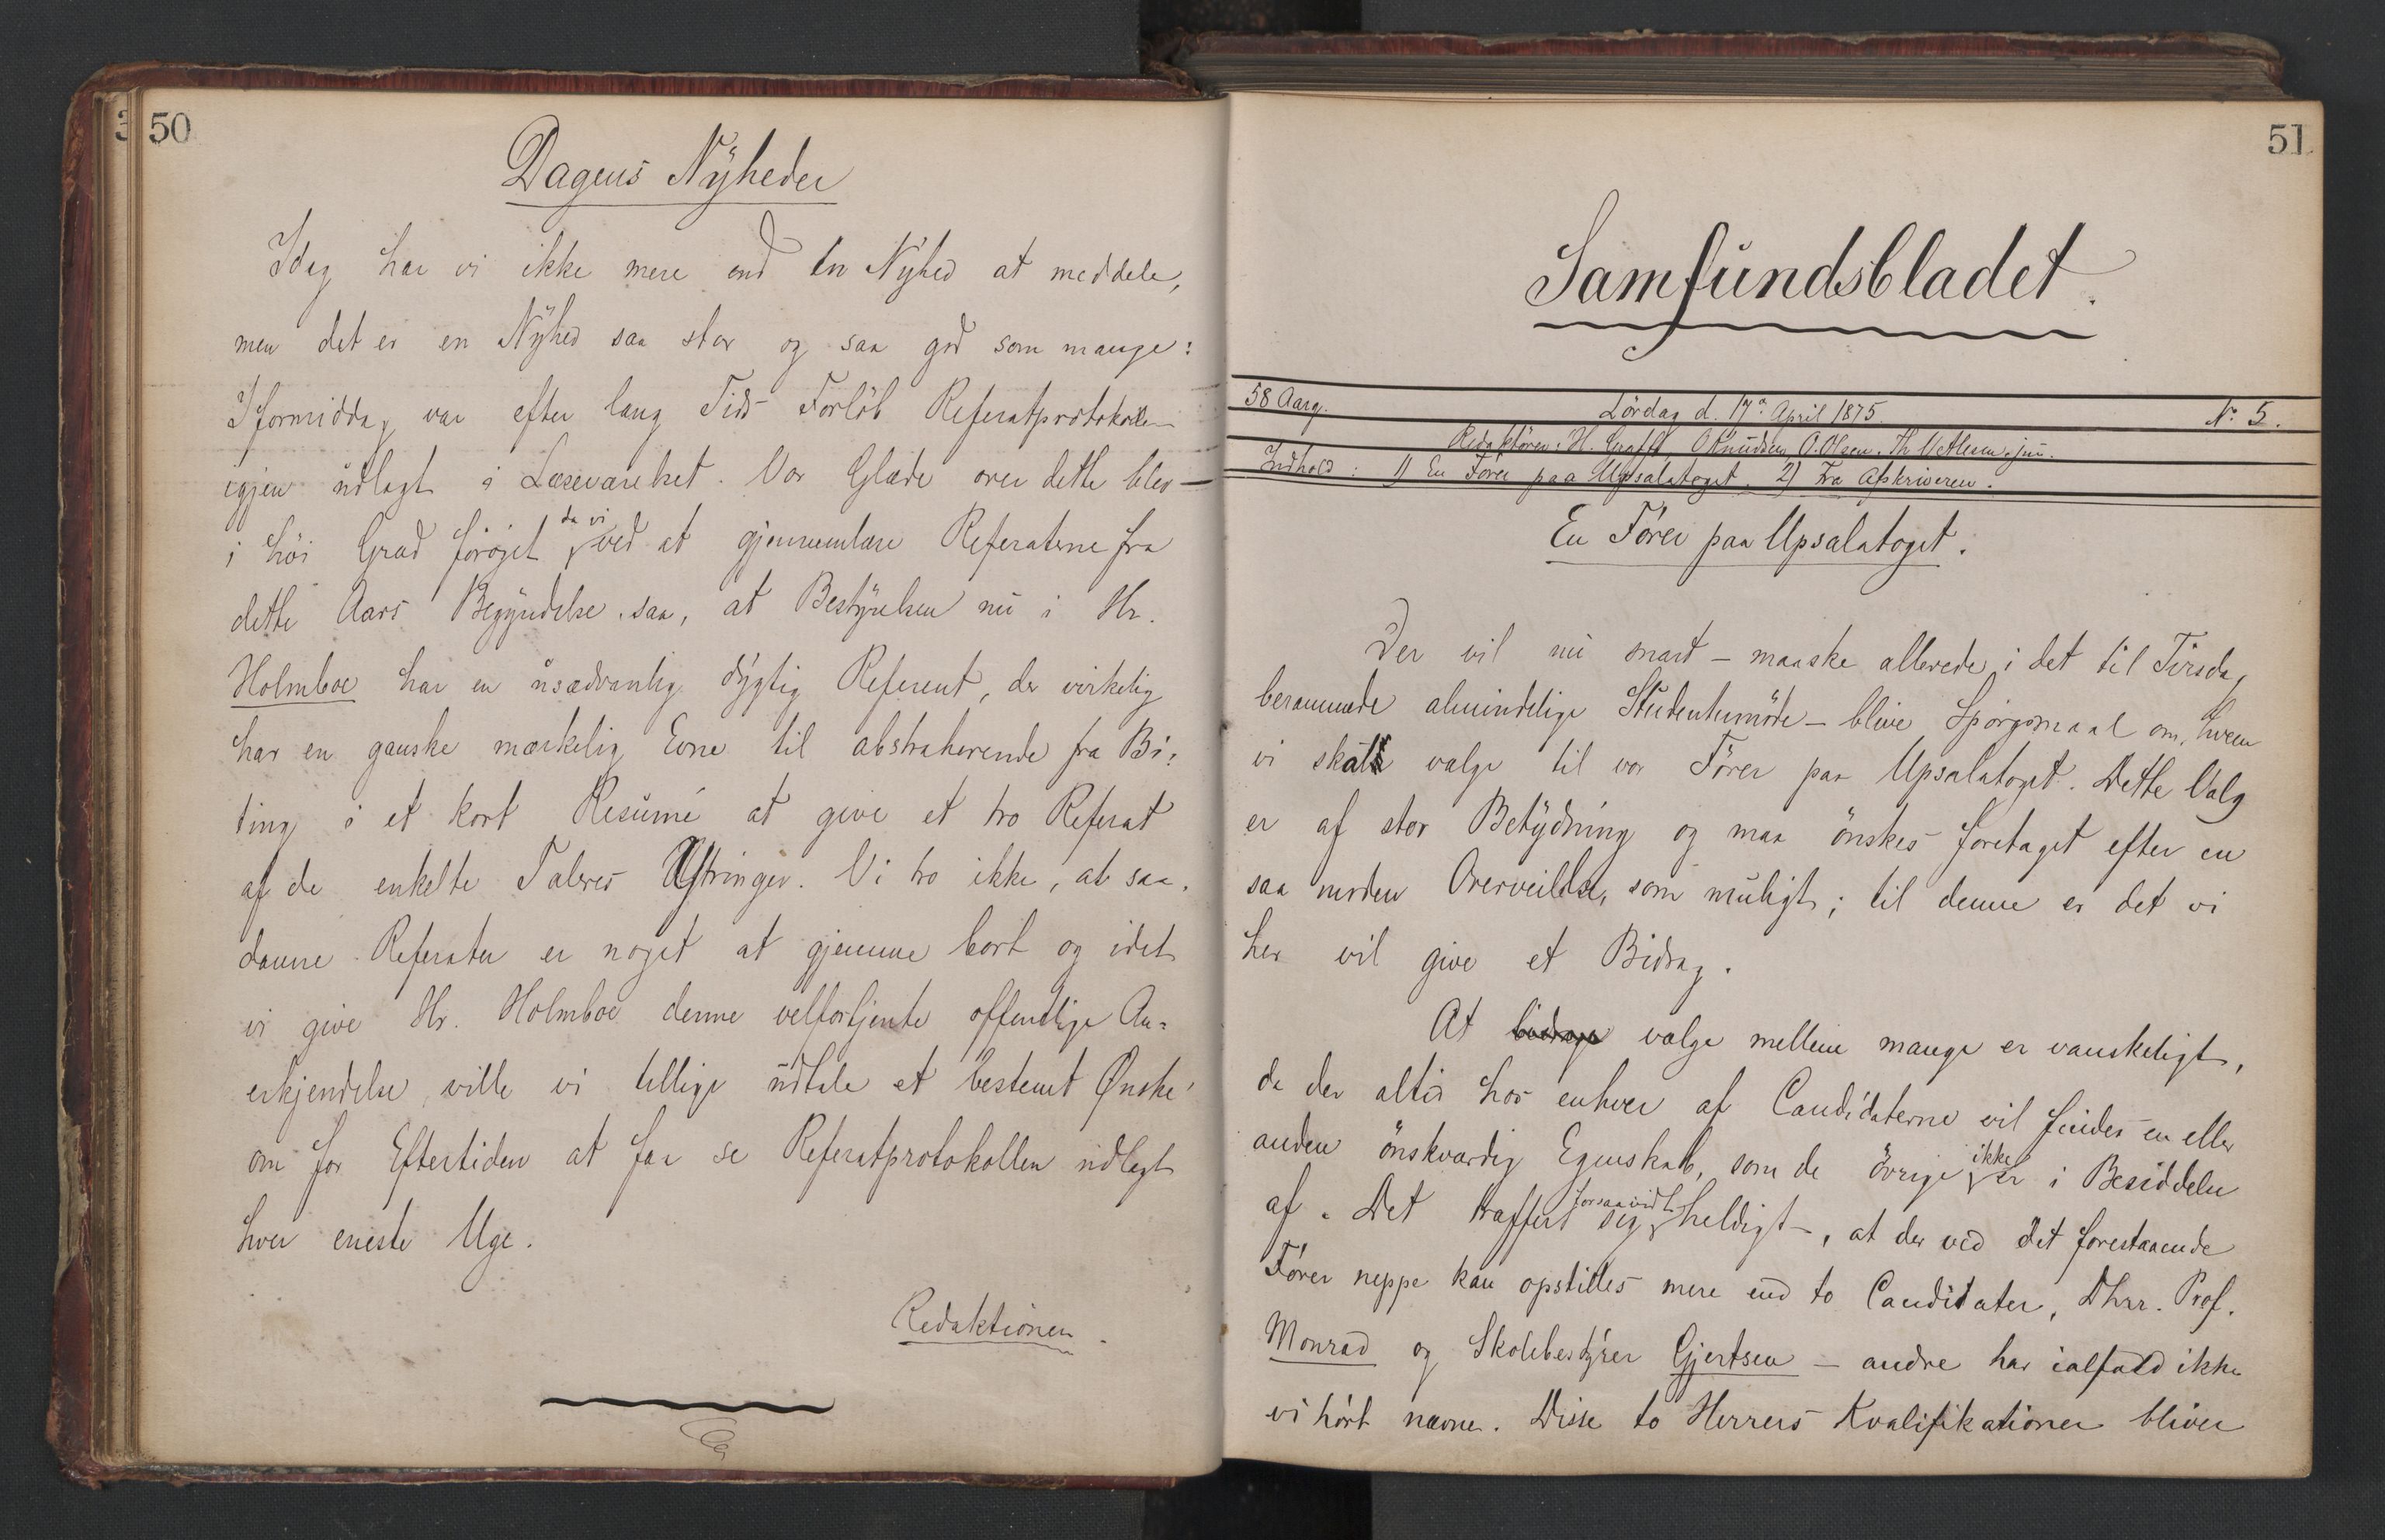 50
Dagens Nyheder
Idag har vi ikke mere end en Nyhed at meddele,
men det er en Nyhed saa stor og saa god som mange:
Iformiddag var efter lang Tids Forløb Referatprotokollen
igjen udlagt i Læseværelset. Vor Glæde over dette blev
i høi Grad forøget da vi ved at gjennemlæse Referaterne fra
dette Aars Begyndelse saa, at Bestyrelsen nu i Hr.
Holmboe har en usædvanlig dygtig Referent, der virkelig
har en ganske mærkelig Evne til abstraherende fra Bi-
ting i et kort Resumé at give et tro Referat
af de enkelte Taleres Yttringer. Vi tro ikke, at saa-
danne Referater er noget at gjemme bort og idet
vi give Hr. Holmboe denne velfortjente offentlige An-
erkjendelse, ville vi tillige udtale et bestemt Ønske
om for Eftertiden at faa se Referatprotokollen udlagt
hver eneste Uge.
Redaktionen.
51
Samfundsbladet.
58 Aarg. Lørdag d. 17de April 1875. No. 5.
Redaktører: H. O Knudsen, O. Olsen, Th. jun.
Indhold: 1) En Fører paa Upsalatoget. 2) Fra Afskriveren.
En Fører paa Upsalatoget.
Der vil nu snart – maaske allerede i det til Tirsdag
berammede almindelige Studentermøde – blive Spørgsmaal om, hvem
vi skal vælge til vor Fører paa Upsalatoget. Dette Valg
er af stor Betydning og maa ønskes foretaget efter en
saa moden Overveielse, som muligt; til denne er det vi
her vil give et Bidrag.
At vælge mellem mange er vanskeligt,
da der altid hos enhver af Candidaterne vil findes en eller
anden ønskværdig Egenskab, som de øvrige ikke er i Besiddelse
af. Det træffer sig forsaavidt heldigt, at der ved det forestaaende
Fører neppe kan opstilles mere end to Candidater, Dhrr. Prof.
Monrad og Skolebestyrer Gjertsen – andre har ialfald ikke
vi hørt nævne. Disse to Herrers Kvalifikationer bliver